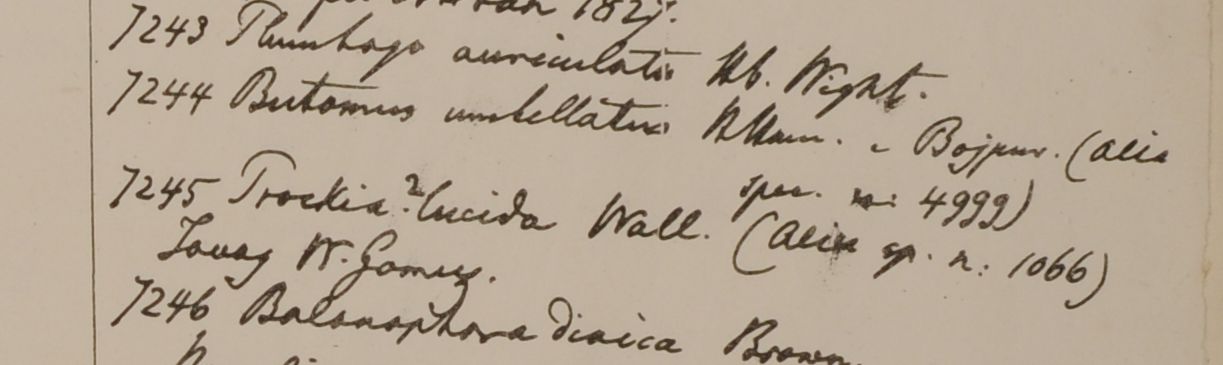 1827.
7243 Plumbago auriculata Hb. Wight.
7244 Butomus umbellatus HHam. e Bojpur. (alia
spec. n: 4999)
7245 Trochia? lucida Wall. (Alia sp. n: 1066)
Tavoy W. Gomez.
7246 Balanophora dioica Brown.